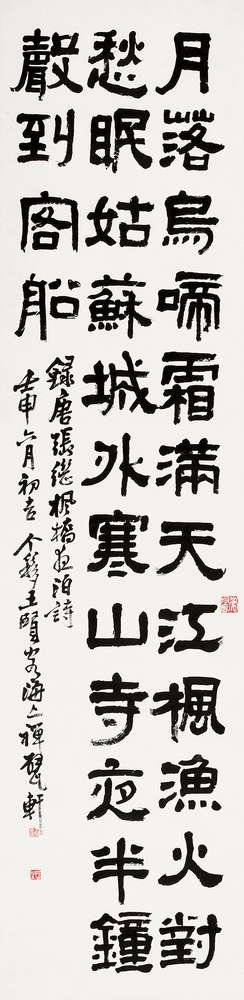 月落烏啼霜滿天江楓漁火對
愁眠姑蘇城外寒山寺夜半鐘
聲到客船
錄唐張繼楓橋夜泊詩
壬申六月初吉个簃王賢客海上禪甓軒